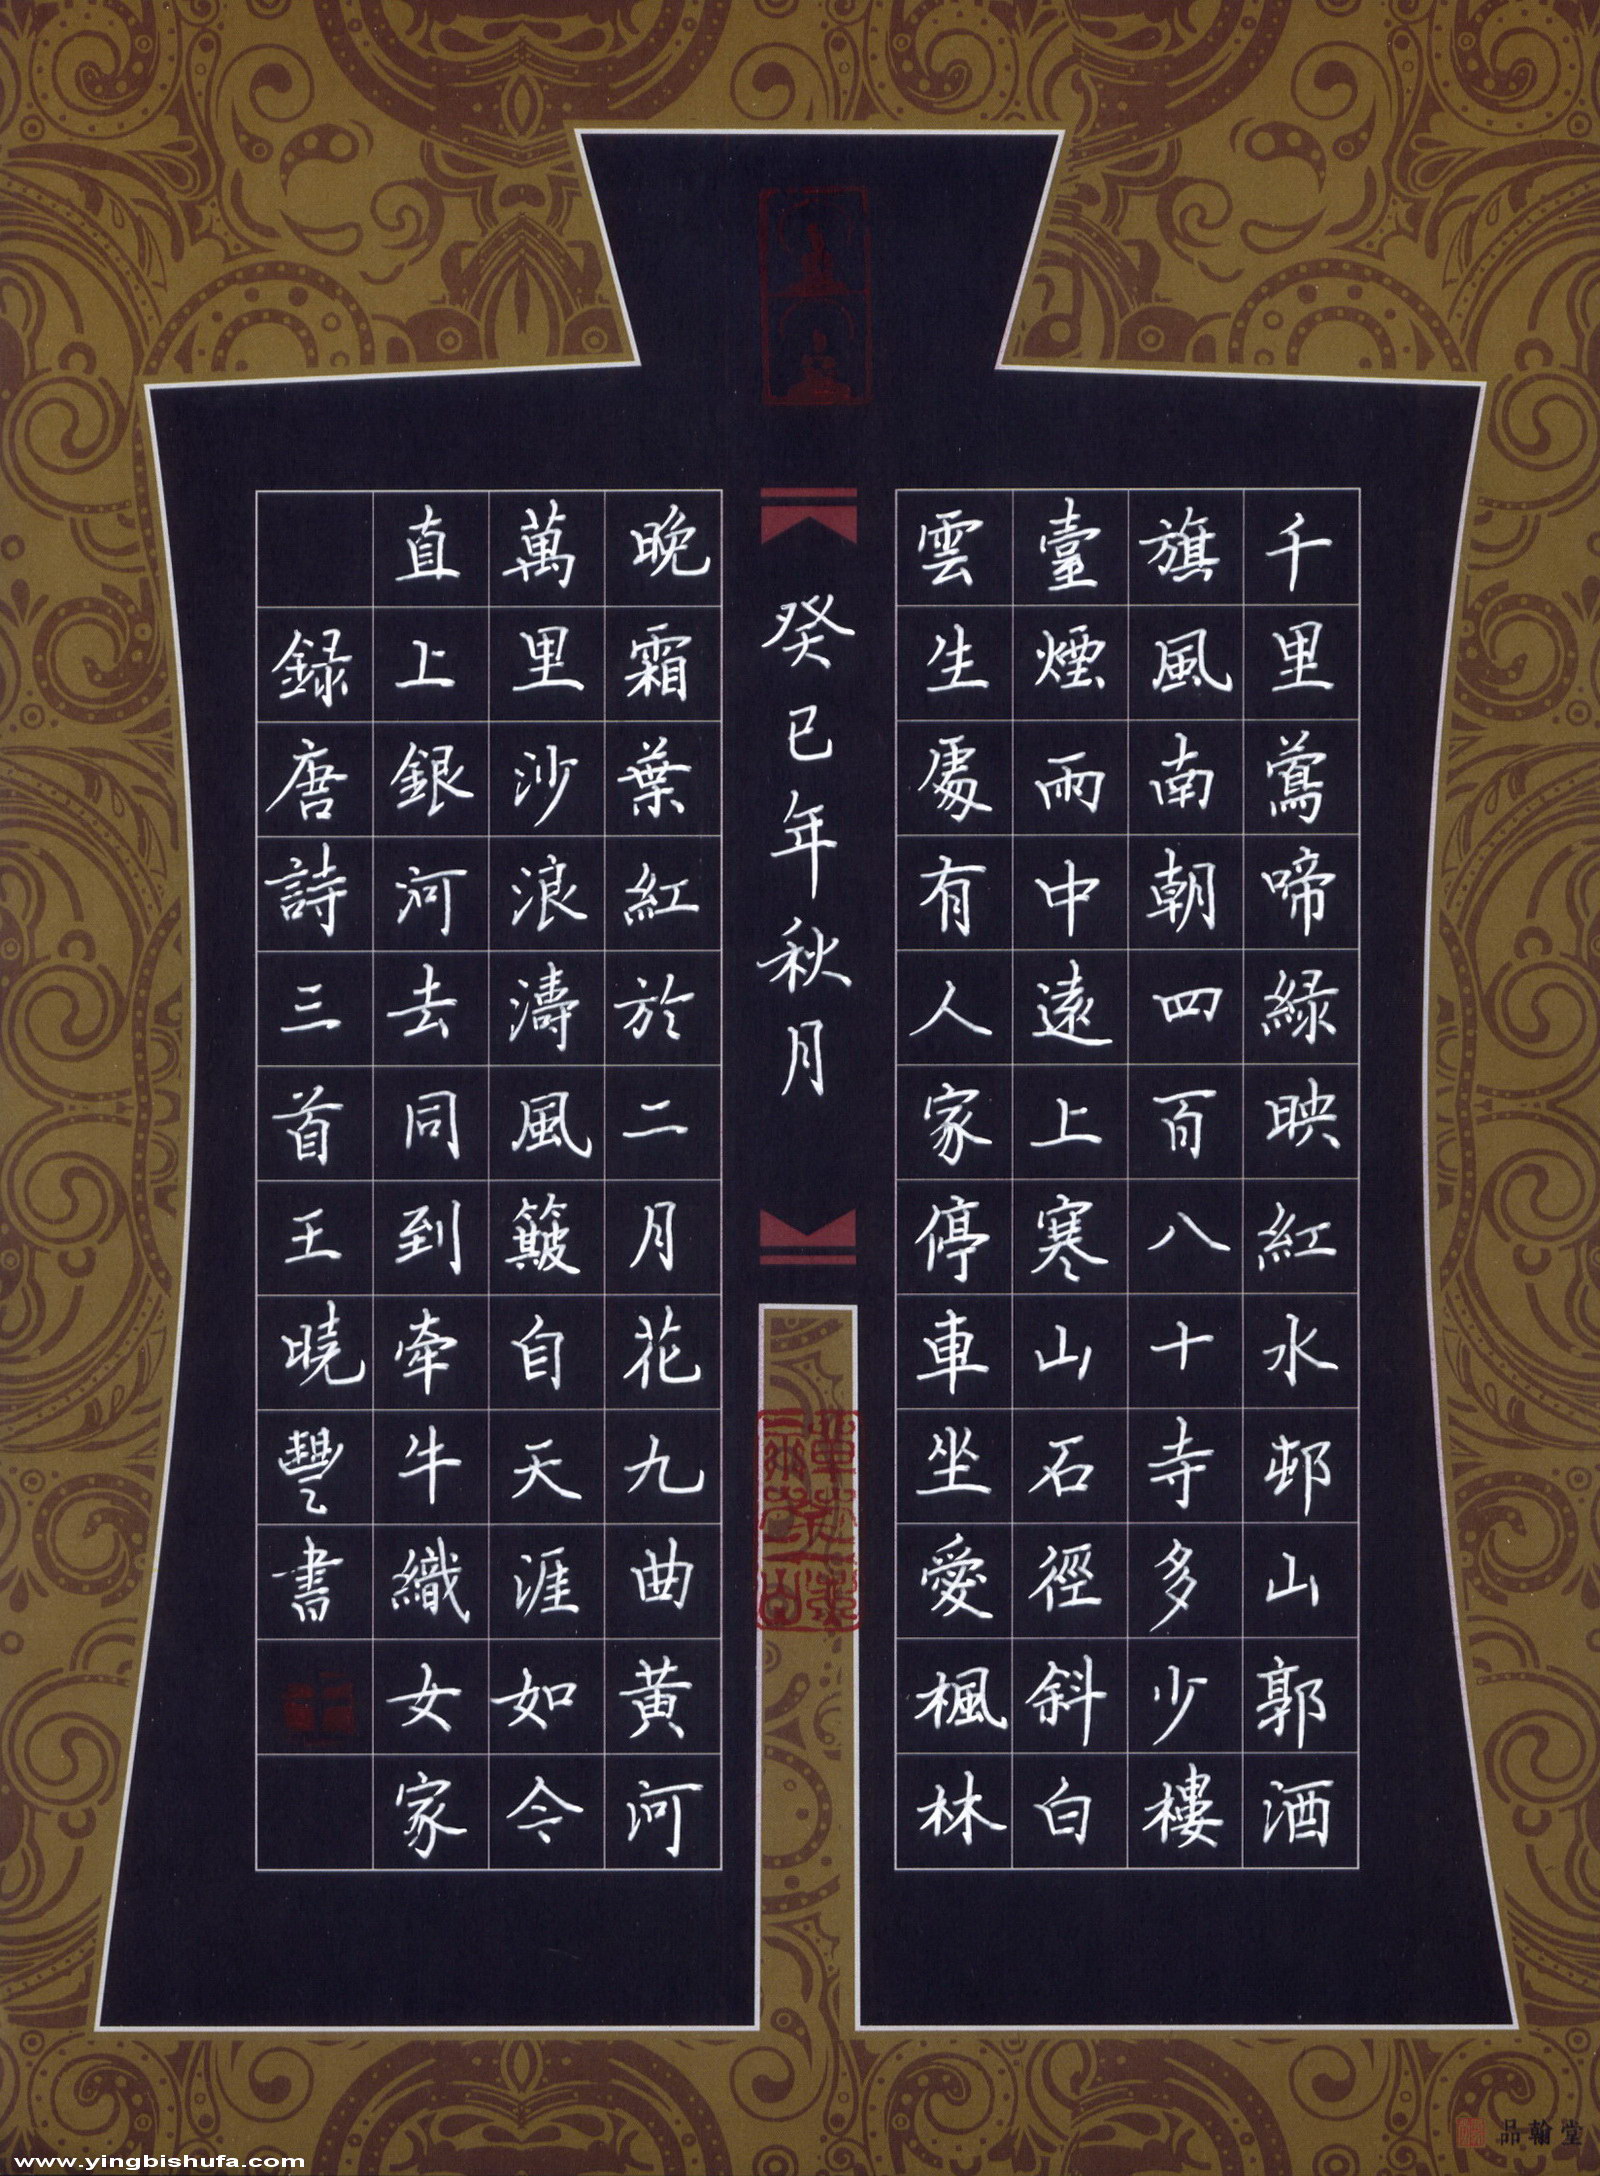 千里鶯啼綠映紅水邨山郭酒
旗風南朝四百八十寺多少樓
臺煙雨中遠上寒山石徑斜白
雲生處有人家停車坐愛楓林
癸巳年秋月
晚霜葉紅於二月花九曲黃河
萬里沙浪濤風簸自天涯如今
直上銀河去同到牽牛織女家
録唐詩三首王曉豐書
品翰堂
www.yingbishufa.com